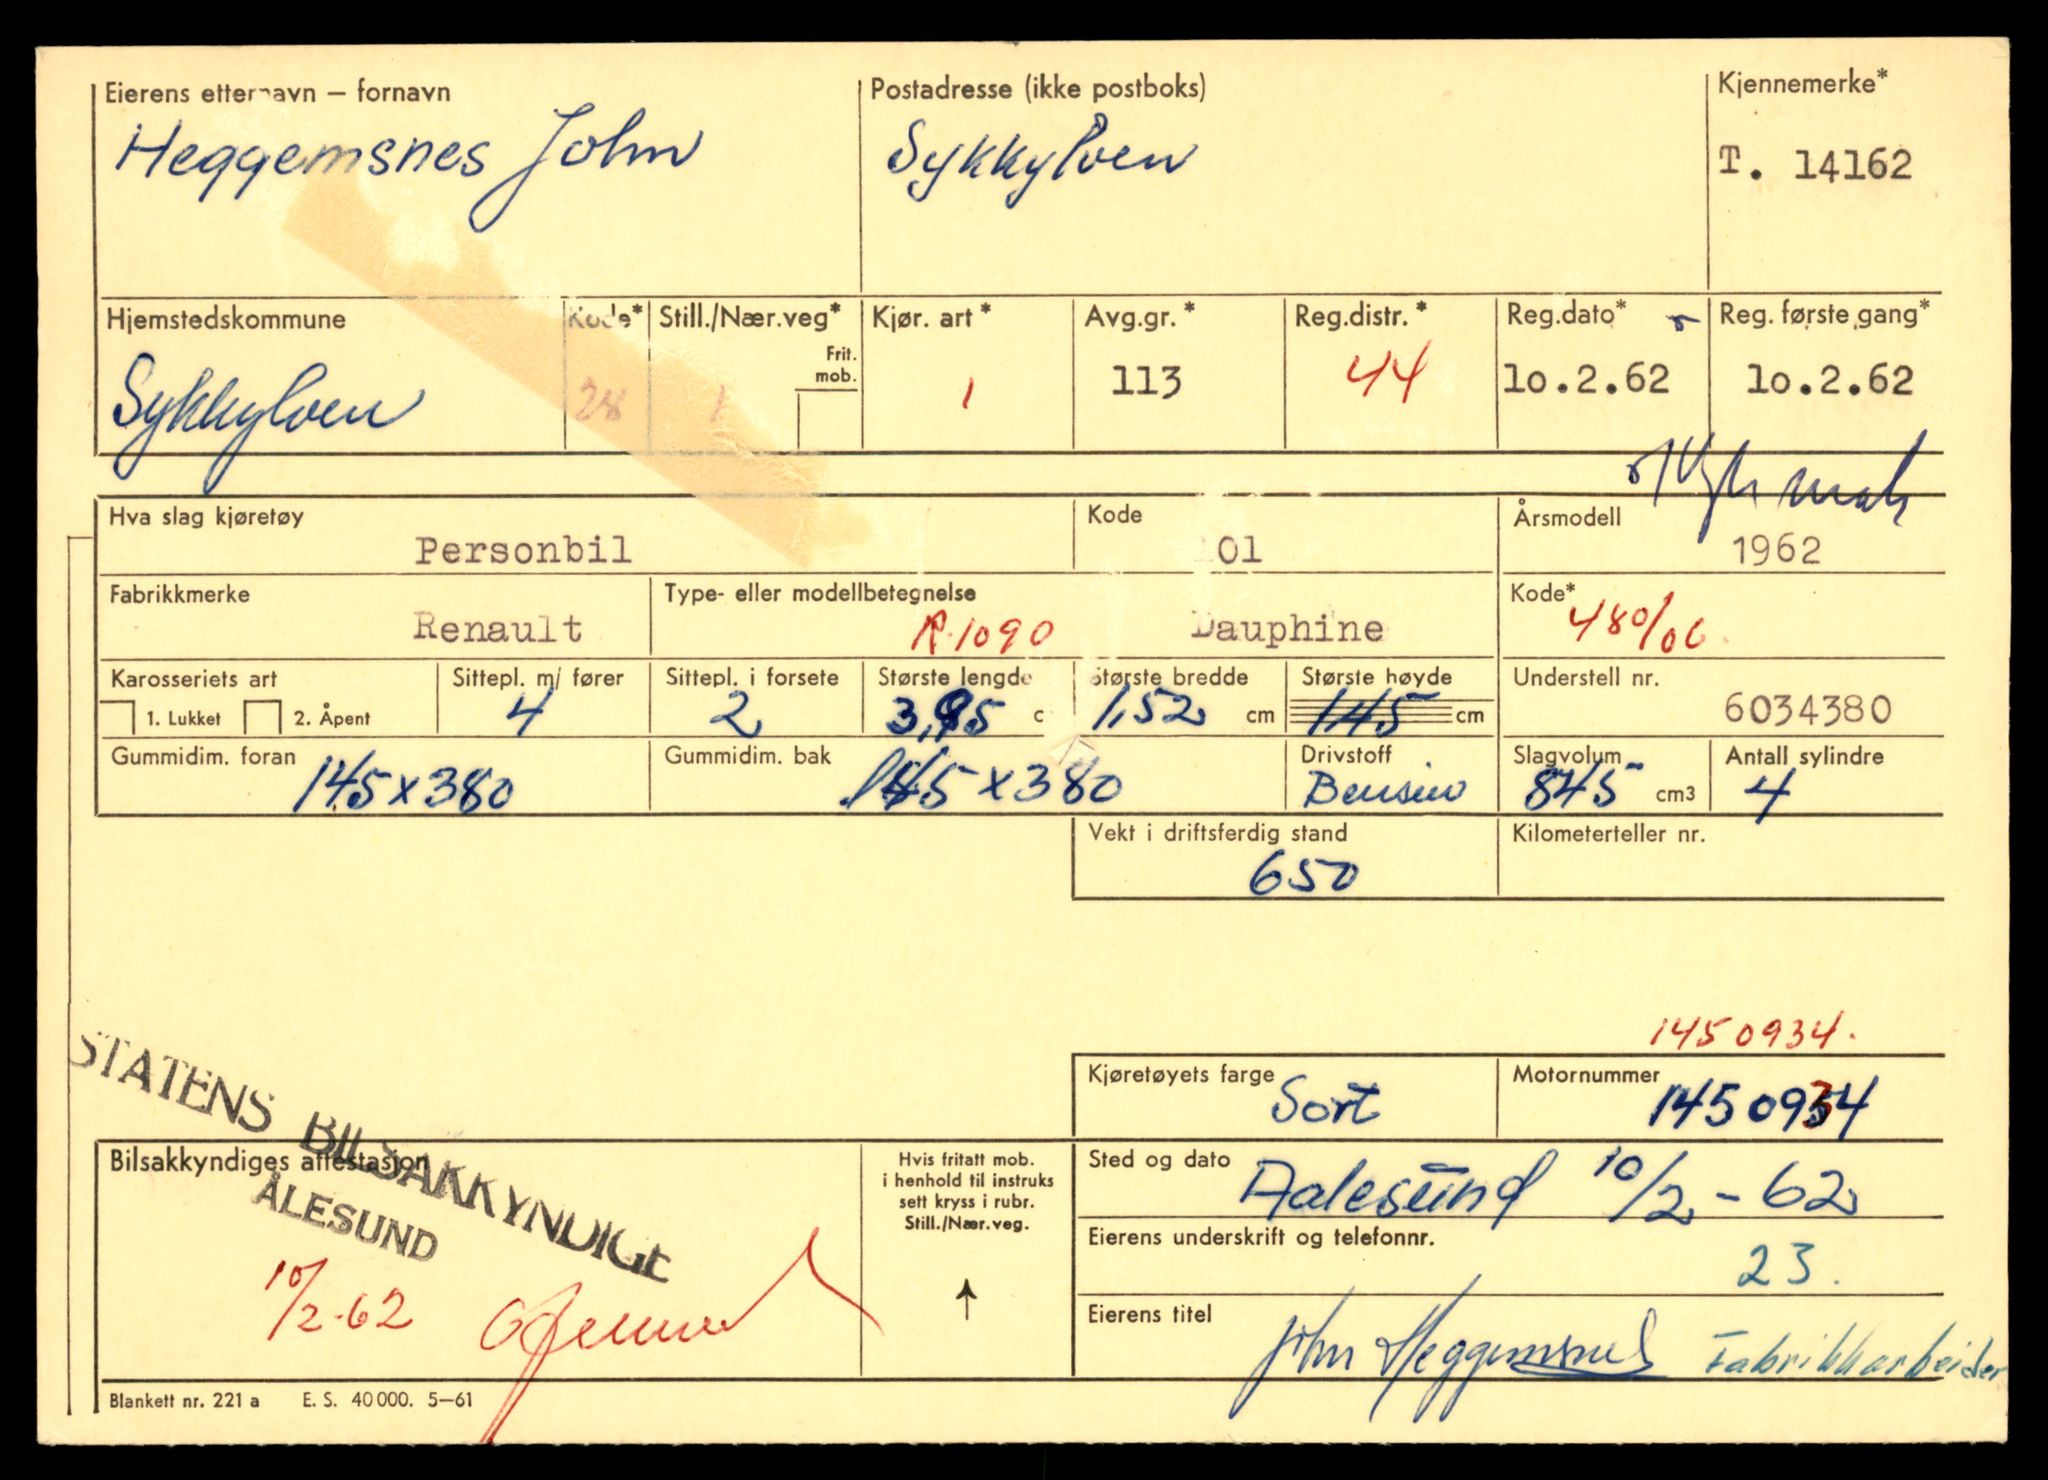 Eierens etternavn – fornavn Postadresse (ikke postboks) Kjennemerke*
Heggemsnes John Sykkylven T. 14162
Hjemstedskommune Kode* Still./Nær.veg* Kjør. art* Avg.gr.* Reg.distr.* Reg.dato* Reg. første gang*
Frit. mob.
Sykkylven 28 1 1 113 44 10.2.62 10.2.62
Hva slag kjøretøy Kode Årsmodell
Personbil 101 1962
Fabrikkmerke Type- eller modellbetegnelse Kode*
Renault R.1090 Dauphine 480/06.
Karosseriets art Sittepl. m/ fører Sittepl. i forsete Største lengde Største bredde Største høyde Understell nr.
1. Lukket 2. Åpent 4 2 3,95 c 1,52 cm 145 cm 6034380
Gummidim. foran Gummidim. bak Drivstoff Slagvolum Antall sylindre
145 x 380 145 x 380 Bensin 845 cm3 4
Vekt i driftsferdig stand Kilometerteller nr.
650
1450934.
Kjøretøyets farge Motornummer
Sort 1450934
STATENS BILSAKKYNDIGE
ÅLESUND
Bilsakkyndiges attestasjon
10/2-62
Hvis fritatt mob.
i henhold til instruks
sett kryss i rubr.
Still./Nær.veg.
↑
Sted og dato
Aalesund 10/2-62
Eierens underskrift og telefonnr.
23.
Eierens titel
John Heggemsnes Fabrikkarbeider
Blankett nr. 221 a E. S. 40 000. 5–61